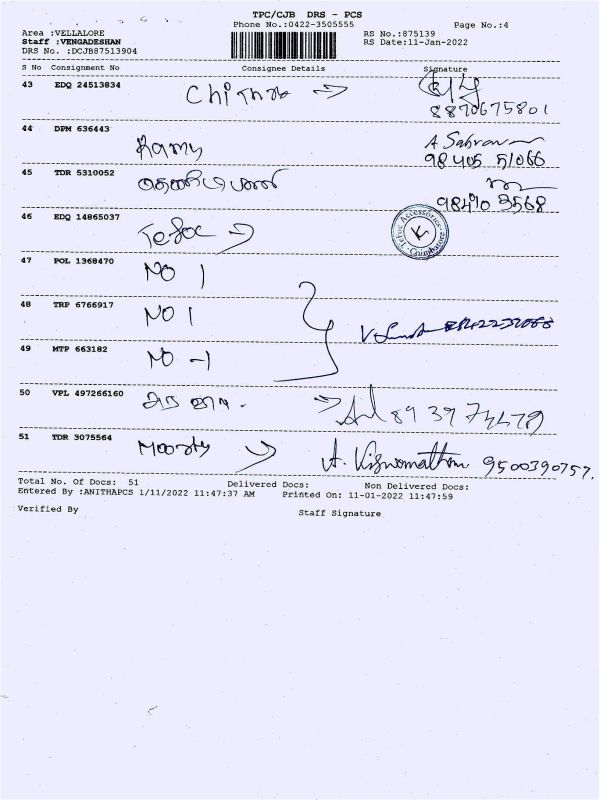 TPC/CJB DRS - PCS
Phone No.:0422-3505555
Page No.:4
Area :VELLALORE
Staff :VENGADESHAN
DRS No. :DCJB87513904
RS No.:875139
RS Date:11-Jan-2022
S No Consignment No Consignee Details Signature
43 EDQ 24513834
8870675801
44 DPM 636443 Ramy A Sabran
98405 51066
45 TDR 5310052
98410 3568
46 EDQ 14865037 Tefoc Tefoc Accessories Coimbatore
47 POL 1368470 NO 1
48 TRP 6766917 NO 1
49 MTP 663182 NO -1
50 VPL 497266160
51 TDR 3075564 Moorty A. Viswanathan 9500390757.
Total No. Of Docs: 51 Delivered Docs: Non Delivered Docs:
Entered By :ANITHAPCS 1/11/2022 11:47:37 AM Printed On: 11-01-2022 11:47:59
Verified By Staff Signature